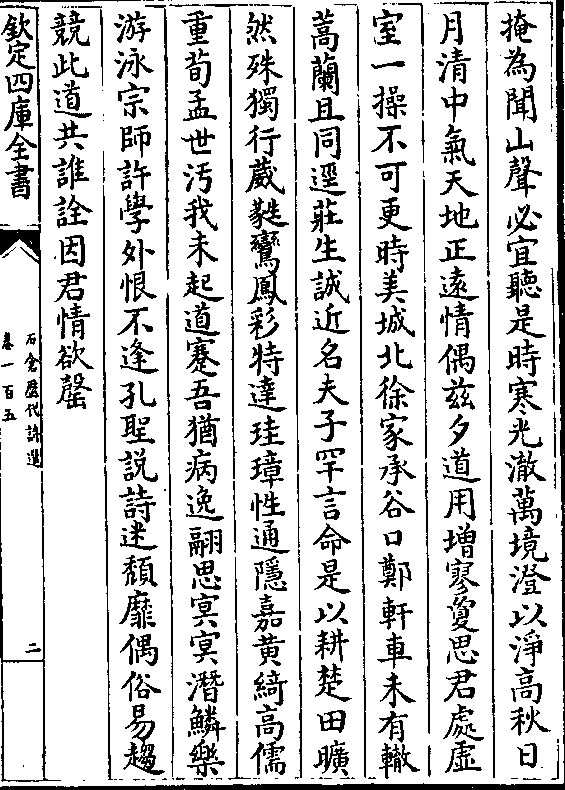 掩為聞山聲必宜聽是時寒光澈萬境澄以淨高秋日
月清中氣天地正遠情偶兹夕道用增寥敻思君處虚
室一操不可更時美城北徐家承谷口鄭軒車未有轍
蒿蘭且同逕莊生誠近名夫子罕言命是以耕楚田曠
然殊獨行葳蕤鸞鳳彩特達珪璋性通隱嘉黄綺高儒
重荀孟世汚我未起道蹇吾猶病逸翮思冥冥潜鱗樂
游泳宗師許學外恨不逢孔聖説詩迷頽靡偶俗易趨
競此道共誰詮因君情欲罄
欽定四庫全書
石倉歷代詩選
卷一百五
二